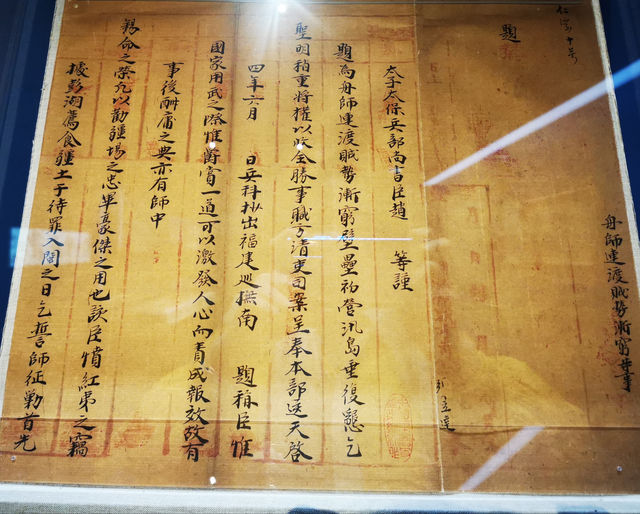 題
舟師連渡賊勢漸窮井事
太子太保兵部尚書臣趙 等謹
題為舟師連渡賊勢漸窮壁壘初營汛島重復懇乞
聖明稍重將權以收全勝事職方清吏司案呈奉本部送天啓
四年六月 日兵科抄出福建巡撫南 題稱臣惟
國家用武之際惟爵賞一道可以激發人心而責成報效故有
事後酬庸之典亦有師中
錫命之榮凡以勸疆場之忠畢豪傑之用也該臣憤紅夷之竊
據彭湖薦食疆土于待罪入閩之日乞誓師征勦首先